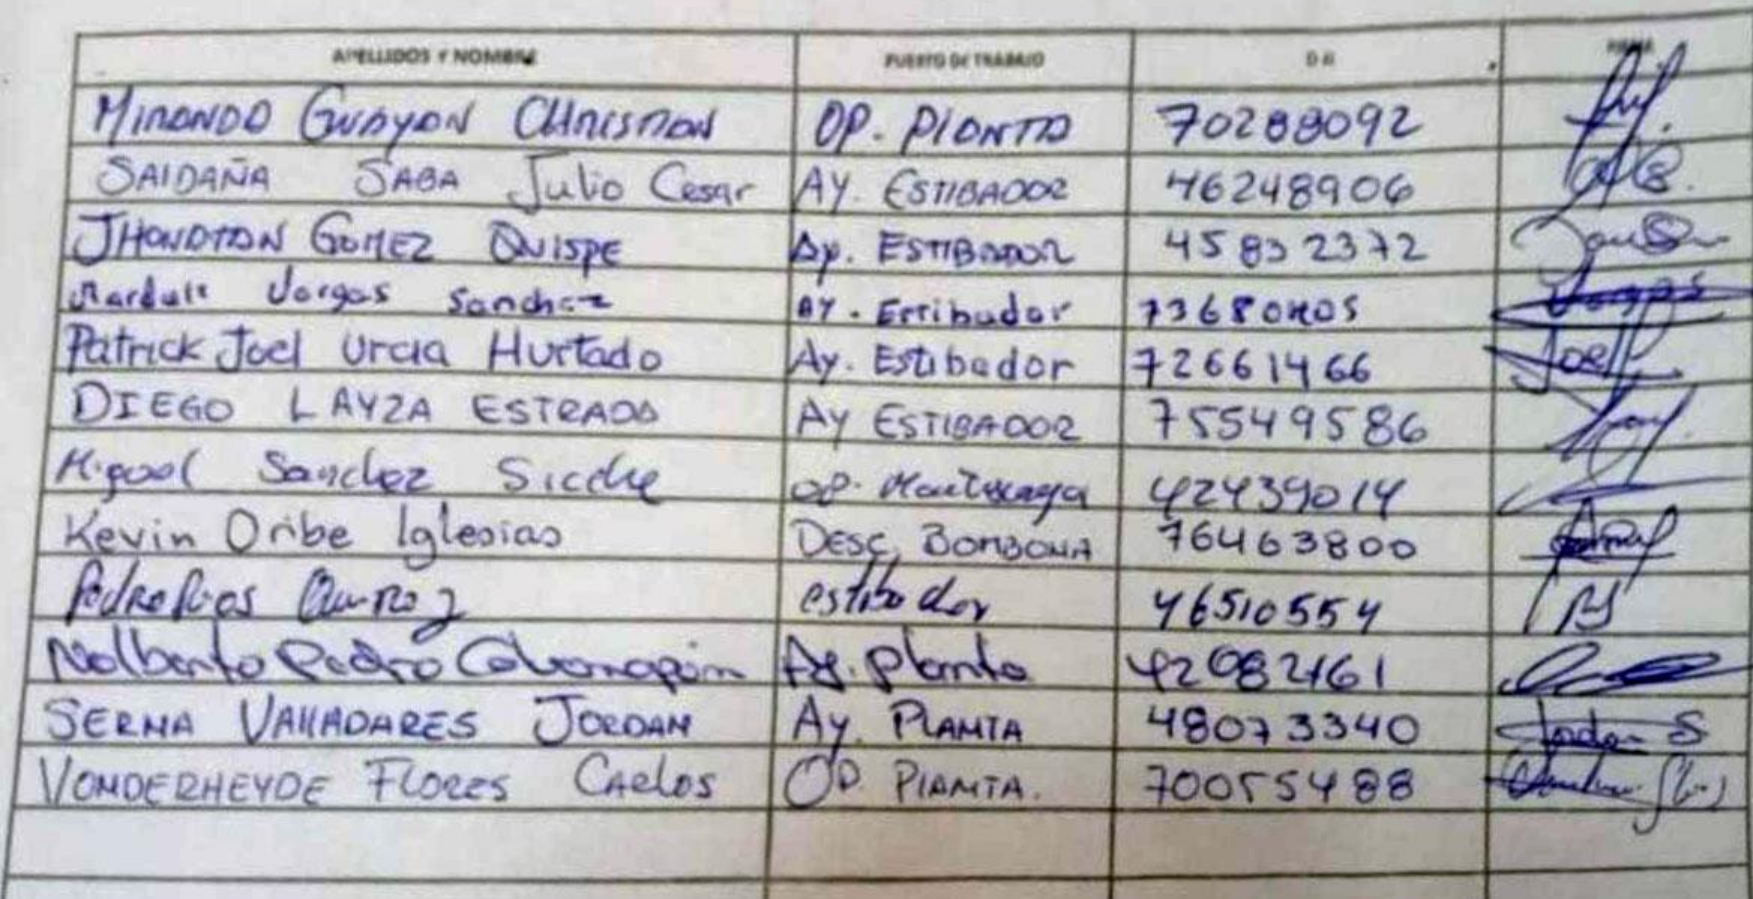 APELLIDOS Y NOMBRE PUESTO DE TRABAJO D N FIRMA
MIRANDA GUAYAN CHRISTIAN OP. PLANTA 70288092
SALDAÑA SABA Julio Cesar AY. ESTIBADOR 46248906
JHONATAN GOMEZ QUISPE Ay. ESTIBADOR 45832372
Vargas Sanchez AY. Estibador Vargas
Patrick Joel Urcia Hurtado Ay. Estibador 72661466 Joel
DIEGO LAYZA ESTRADA AY ESTIBADOR 75549586
Miguel Sanchez Sicche OP. 42439014
Kevin Oribe Iglesias DESC. BOMBONA 76463800
Pedro Rios estibador 46510554
Nolberto Pedro Ay. Planta 42082161
SERNA VALLADARES JORDAN AY. PLANTA 48073340 Jordan S
VONDERHEYDE FLORES CARLOS OP. PLANTA. 70055488